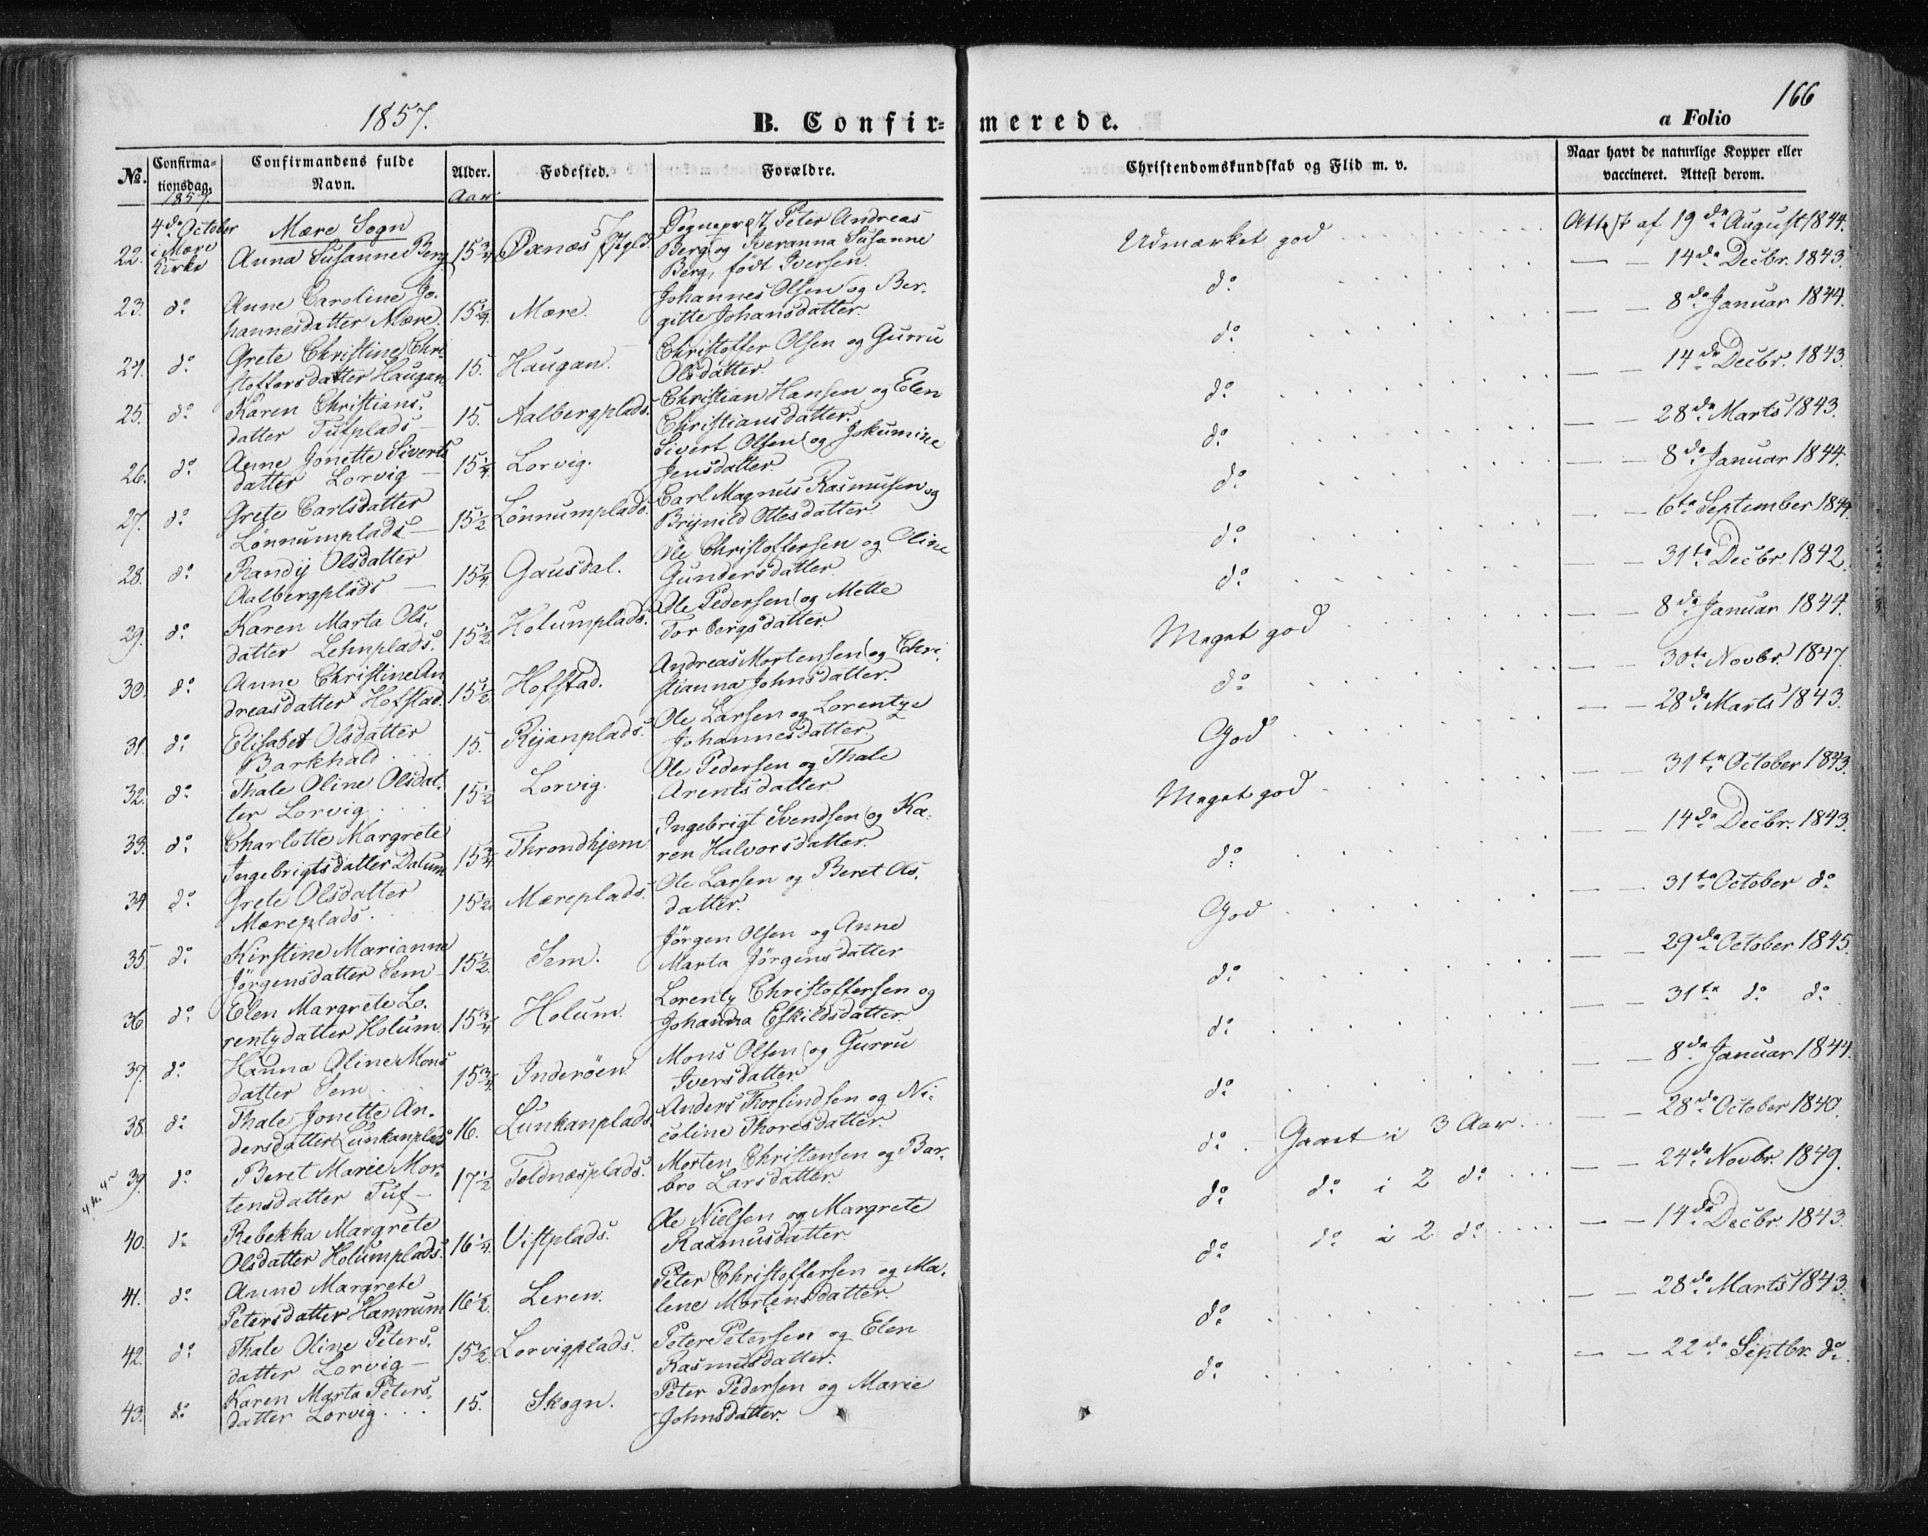 1857.
B. Confir=merede.
166
a Folio
No.
Confirma=
tionsdag.
1857.
Confirmandens fulde
Navn.
Alder.
Aar
Fødested.
Forældre.
Christendomskundskab og Flid m. v.
Naar havt de naturlige Kopper eller
vaccineret. Attest derom.
4de October
i Mære
Kirke
Mære Sogn
22. Anna Susanne Berg 15 3/4 Øxnæs Prgld. Sogneprest Peter Andreas
Berg og Iveranna Susanne
Berg, født Iversen.
Udmærket god Attest af 19de August 1844.
23. do Anne Caroline Jo-
hannesdatter Mære. 15 1/4. Mære. Johannes Olsen og Ber-
gitte Johansdatter.
do — — 14de Decbr. 1843.
24. do Grete Christine Chri-
stoffersdatter Haugan 15. Haugan. Christoffer Olsen og Gurru
Olsdatter.
do — — 8de Januar 1844.
25. do Karen Christians-
datter Tufplads — 15. Aalbergplads. Christian Hansen og Elen
Christiansdatter.
do — — 14de Decbr. 1843.
26. do Anne Jonette Siverts
datter Lorvig — 15 1/4. Lorvig. Sivert Olsen og Jokumine
Jensdatter.
do — — 28de Marts 1843.
27. do Grete Carlsdatter
Lønnumplads — 15 1/2 Lønnumplads. Carl Magnus Rasmusen og
Brynild Ottesdatter.
do — — 8de Januar 1844.
28. do Randij Olsdatter
Aalbergplads — 15 1/4. Gausdal. Ole Christoffersen og Oline
Gundersdatter.
do — — 6te September 1844.
29. do Karen Marta Ols-
datter Lehnplads. 15 1/2 Holumplads. Ole Pedersen og Mette
Torbergsdatter.
do — — 31te Decbr. 1842.
30. do Anne Christine An
dreasdatter Hofstad. 15 1/2 Hofstad. Andreas Mortensen og Chri-
stianna Johnsdatter.
Meget god — — 8de Januar 1844.
31. do Elisabet Olsdatter
Barkhald 15. Rijanplads. Ole Larsen og Lorentze
Johannesdatter
do — — 30te Novbr. 1847.
32. do Thale Oline Olsdat-
ter Lorvig 15 1/2 Lorvig. Ole Pedersen og Thale
Arentsdatter
God — — 28de Marts 1843.
33. do Charlotte Margrete
Ingebrigtsdatter Dalum 15 3/4 Throndhjem Ingebrigt Svendsen og Ka-
ren Halvorsdatter.
Meget god — — 31te October 1843.
34 do Grete Olsdatter
Mæreplads. 15 1/2. Mæreplads. Ole Larsen og Beret Ols-
datter.
do — — 14de Decbr. 1843.
35. do Kirstine Marianne
Jørgensdatter Sem — 15 1/2. Sem. Jørgen Olsen og Anne
Marta Jørgensdatter
God — — 31te October do
36. do Elen Margrete Lo-
rentzdatter Holum. 15 3/4 Holum. Lorentz Christoffersen og
Johanna Eskildsdatter.
do — — 29de October 1845.
37. do Hanna Oline Mons
datter Sem 15 3/4 Inderøen. Mons Olsen og Gurru
Iversdatter.
do — — 31te do do
38. do Thale Jonette An-
dersdatter Lunkanplads 16. Lunkanplads. Anders Thorfindsen og Ni-
coline Thoresdatter.
do — — 8de Januar 1844.
39. do Beret Marie Mor-
tensdatter Tuf — 17 1/2 Foldnæsplads. Morten Christensen og Bar-
bro Larsdatter.
do Gaaet i 3 Aar — — 28de October 1840.
40. do Rebekka Margrete
Olsdatter Holumplads. 16 1/4. Vistplads. Ole Nielsen og Margrete
Rasmusdatter.
do do i 2 do — — 24de Novbr. 1849.
41. do Anne Margrete
Petersdatter Hamrum 16 1/2. Leren. Peter Christoffersen og Ma-
lene Mortensdatter.
do do i 2 do — — 14de Decbr. 1843.
42. do Thale Oline Peters-
datter Lorvig — 15 1/2. Lorvigplads. Peter Petersen og Elen
Rasmusdatter.
do — — 28de Marts 1843.
43. do Karen Marta Peters-
datter Lorvig 15. Skogn. Peter Pedersen og Marie
Johnsdatter.
do — — 22de Septbr. do